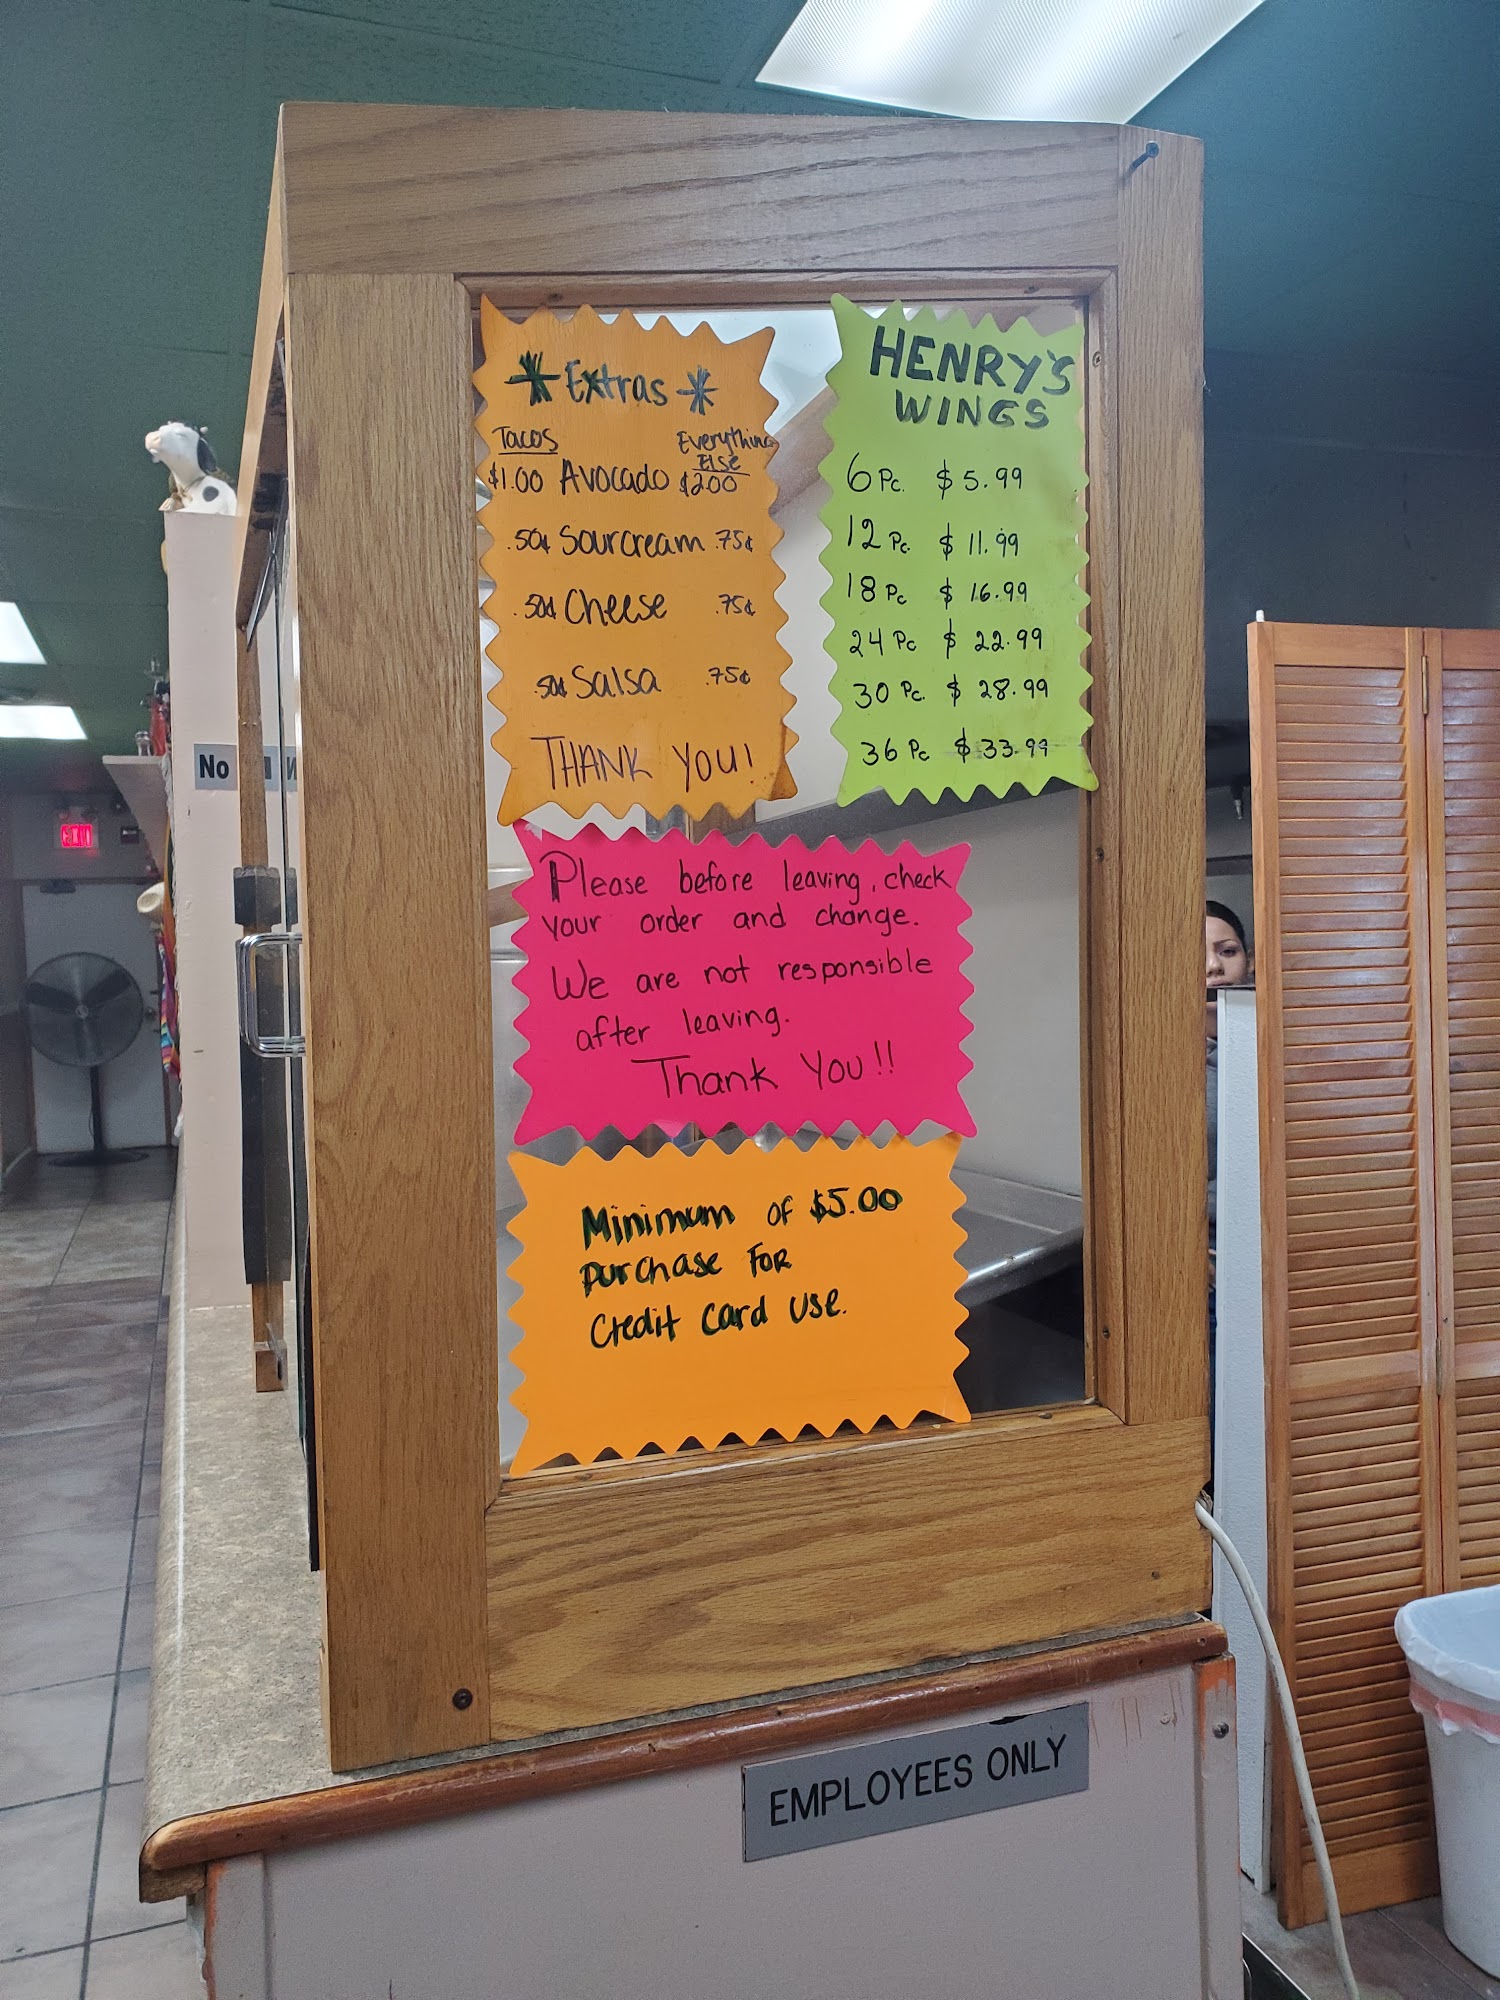 * Extras *
Tacos Everything
Else
$1.00 Avocado $2.00
.50¢ Sourcream .75¢
.50¢ Cheese .75¢
.50¢ Salsa .75¢
THANK YOU!
HENRY'S
WINGS
6 Pc. $5.99
12 Pc. $11.99
18 Pc $16.99
24 Pc $22.99
30 Pc. $28.99
36 Pc $33.99
Please before leaving, check
your order and change.
We are not responsible
after leaving.
Thank You!!
Minimum of $5.00
purchase For
Credit Card Use.
EMPLOYEES ONLY
No
EXIT